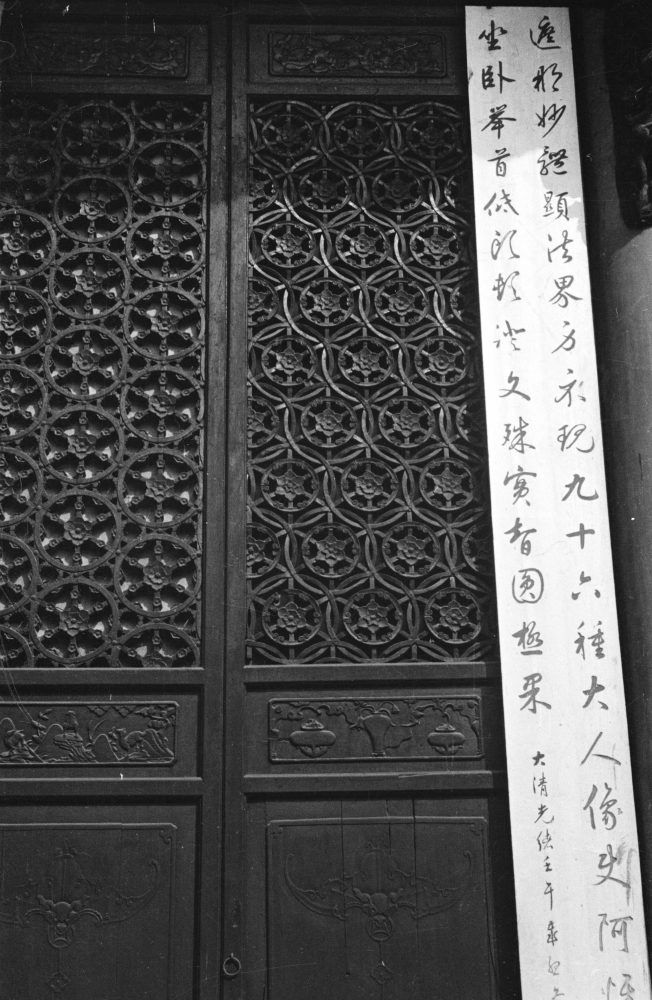 遮那妙體顯法界方示現九十六種大人像使阿
坐卧舉首低頭頓證文殊實智圓極果
大清光緒壬午